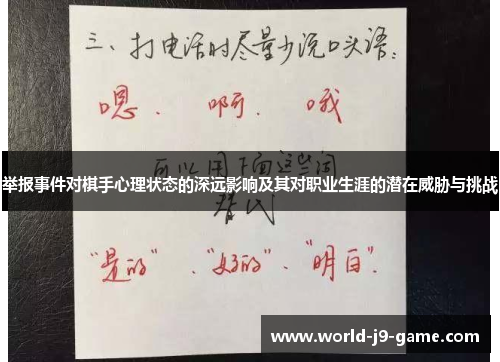 三、打电话时尽量少说口头语：
嗯．啊．哦
可以用下面这些词
举报事件对棋手心理状态的深远影响及其对职业生涯的潜在威胁与挑战
替代
“是的”．“好的”．“明白”．
www.world-j9-game.com